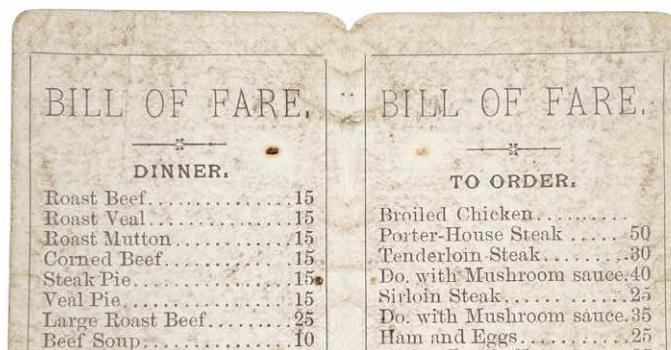 BILL OF FARE.
DINNER.
Roast Beef..................15
Roast Veal..................15
Roast Mutton................15
Corned Beef.................15
Steak Pie...................15
Veal Pie....................15
Large Roast Beef............25
Beef Soup...................10
BILL OF FARE.
TO ORDER.
Broiled Chicken..........
Porter-House Steak ......50
Tenderloin Steak.........30
Do. with Mushroom sauce.40
Sirloin Steak............25
Do. with Mushroom sauce.35
Ham and Eggs............25